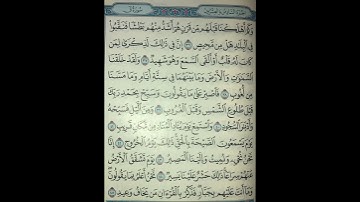 وَكَمْ أَهْلَكْنَا قَبْلَهُم مِّن قَرْنٍ هُمْ أَشَدُّ مِنْهُم بَطْشًا فَنَقَّبُوا۟
فِى ٱلْبِلَٰدِ هَلْ مِن مَّحِيصٍ ۝٣٦ إِنَّ فِى ذَٰلِكَ لَذِكْرَىٰ لِمَن
كَانَ لَهُۥ قَلْبٌ أَوْ أَلْقَى ٱلسَّمْعَ وَهُوَ شَهِيدٌ ۝٣٧ وَلَقَدْ خَلَقْنَا
ٱلسَّمَٰوَٰتِ وَٱلْأَرْضَ وَمَا بَيْنَهُمَا فِى سِتَّةِ أَيَّامٍ وَمَا مَسَّنَا
مِن لُّغُوبٍ ۝٣٨ فَٱصْبِرْ عَلَىٰ مَا يَقُولُونَ وَسَبِّحْ بِحَمْدِ رَبِّكَ
قَبْلَ طُلُوعِ ٱلشَّمْسِ وَقَبْلَ ٱلْغُرُوبِ ۝٣٩ وَمِنَ ٱلَّيْلِ فَسَبِّحْهُ
وَأَدْبَٰرَ ٱلسُّجُودِ ۝٤٠ وَٱسْتَمِعْ يَوْمَ يُنَادِ ٱلْمُنَادِ مِن مَّكَانٍ قَرِيبٍ ۝٤١
يَوْمَ يَسْمَعُونَ ٱلصَّيْحَةَ بِٱلْحَقِّ ذَٰلِكَ يَوْمُ ٱلْخُرُوجِ ۝٤٢ إِنَّا
نَحْنُ نُحْىِۦ وَنُمِيتُ وَإِلَيْنَا ٱلْمَصِيرُ ۝٤٣ يَوْمَ تَشَقَّقُ ٱلْأَرْضُ
عَنْهُمْ سِرَاعًا ذَٰلِكَ حَشْرٌ عَلَيْنَا يَسِيرٌ ۝٤٤ نَّحْنُ أَعْلَمُ بِمَا يَقُولُونَ
وَمَآ أَنتَ عَلَيْهِم بِجَبَّارٍ فَذَكِّرْ بِٱلْقُرْءَانِ مَن يَخَافُ وَعِيدِ ۝٤٥